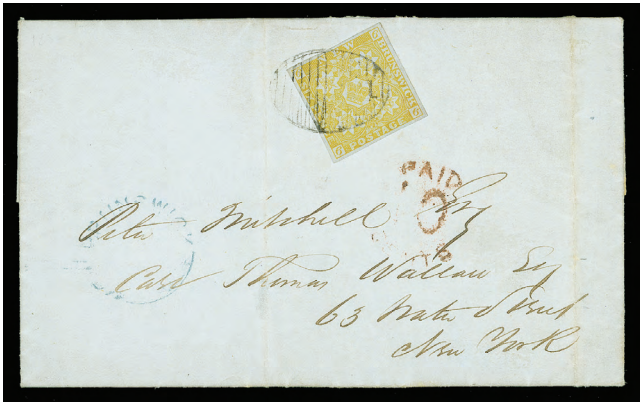 POSTAGE
PAID
Peter Mitchell Esq
Care Thomas Wallace Esq
63 Water Street
New York